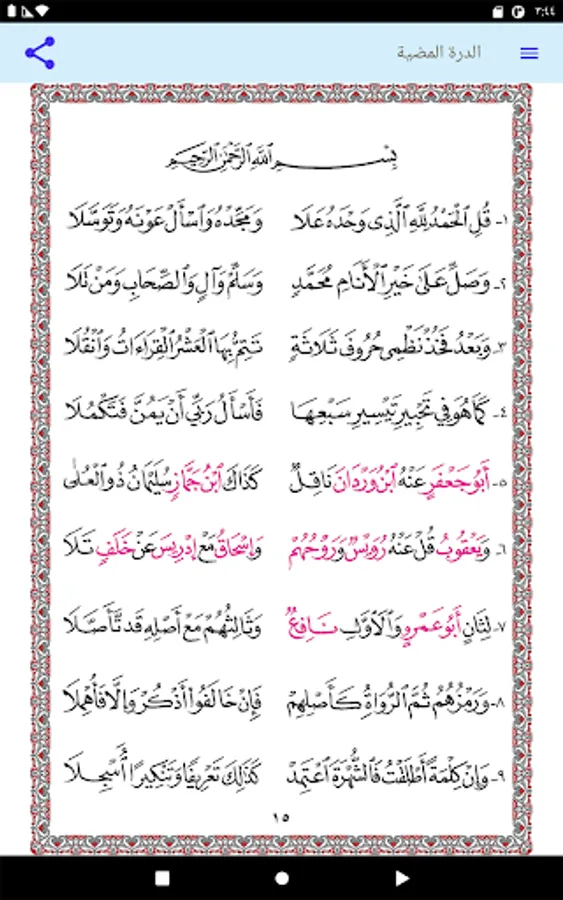 ٣:٤٤
الدرة المضية
بِسْمِ اللَّهِ الرَّحْمَٰنِ الرَّحِيمِ
١- قُلِ الْحَمْدُ لِلَّهِ الَّذِى وَحْدَهُ عَلَا وَمَجِّدْهُ وَاسْأَلْ عَوْنَهُ وَتَوَسَّلَا
٢- وَصَلِّ عَلَىٰ خَيْرِ الْأَنَامِ مُحَمَّدٍ وَسَلِّمْ وَآلٍ وَالصِّحَابِ وَمَنْ تَلَا
٣- وَبَعْدُ فَخُذْ نَظْمِى حُرُوفَ ثَلَاثَةٍ تَتِمُّ بِهَا الْعَشْرُ الْقِرَاءَاتُ وَانْقُلَا
٤- كَمَا هُوَ فِي تَحْبِيرِ تَيْسِيرِ سَبْعِهَا فَأَسْأَلُ رَبِّي أَنْ يَمُنَّ فَتَكْمُلَا
٥- أَبُو جَعْفَرٍ عَنْهُ ابْنُ وَرْدَانَ نَاقِلٌ كَذَاكَ ابْنُ جَمَّازٍ سُلَيْمَانُ ذُو الْعُلَىٰ
٦- وَيَعْقُوبُ قُلْ عَنْهُ رُوَيْسٌ وَرَوْحُهُمْ وَإِسْحَاقُ مَعْ إِدْرِيسَ عَنْ خَلَفٍ تَلَا
٧- لِثَانٍ أَبُو عَمْرٍو وَالْاوَّلِ نَافِعٌ وَثَالِثُهُمْ مَعْ أَصْلِهِ قَدْ تَأَصَّلَا
٨- وَرَمْزُهُمُ ثُمَّ الرُّوَاةُ كَأَصْلِهِمْ فَإِنْ خَالَفُوا أَذْكُرْ وَإِلَّا فَأُهْمِلَا
٩- وَإِنْ كِلْمَةً أَطْلَقْتُ فَالشُّهْرَةَ اعْتَمِدْ كَذَلِكَ تَعْرِيفًا وَتَنْكِيرًا أُسْجِلَا
١٥